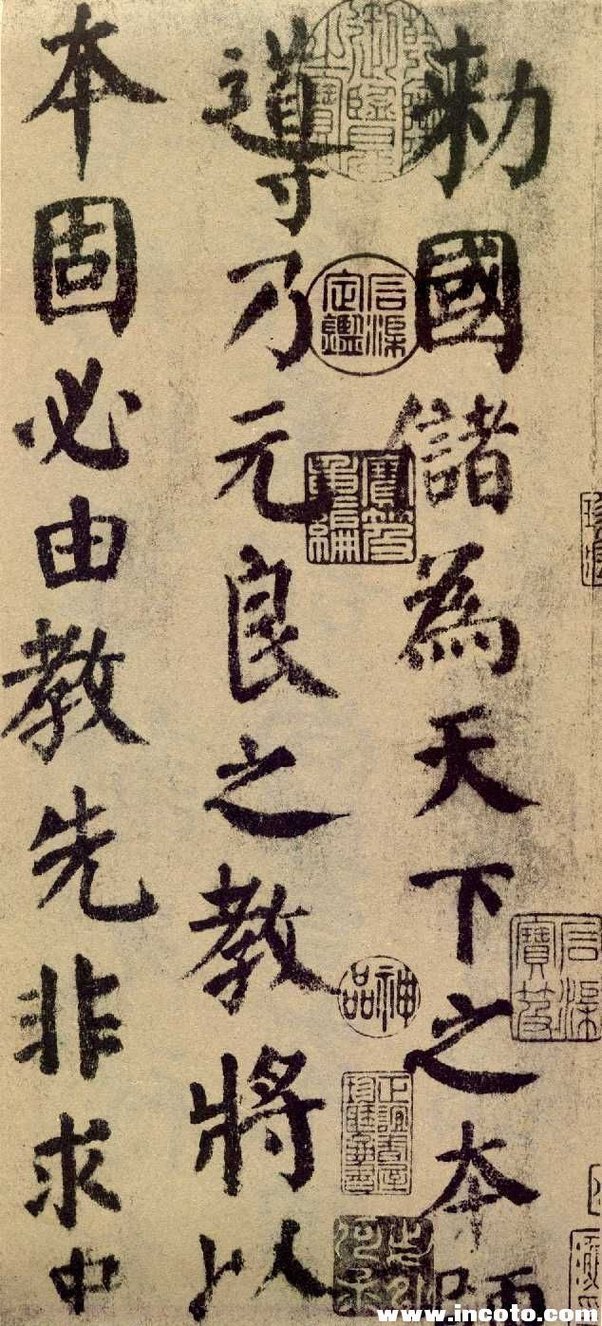 勅國儲為天下之本師
導乃元良之教將以
本固必由教先非求中
石渠定鑑
寶笈重編
石渠寶笈
神品
www.incoto.com